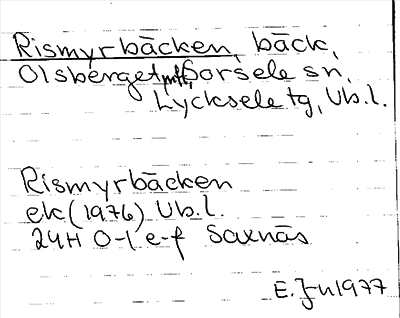 Rismyrbäcken, bäck,
Olsberget Sorsele sn,
Lycksele tg, Vb.l.
Rismyrbäcken
ek (1976) Vb.l.
24H O-l e-f Saxnäs
E. 1977